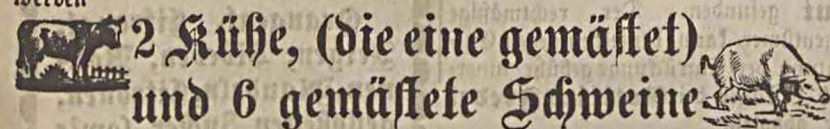 werden
2 Kühe, (die eine gemästet)
und 6 gemästete Schweine